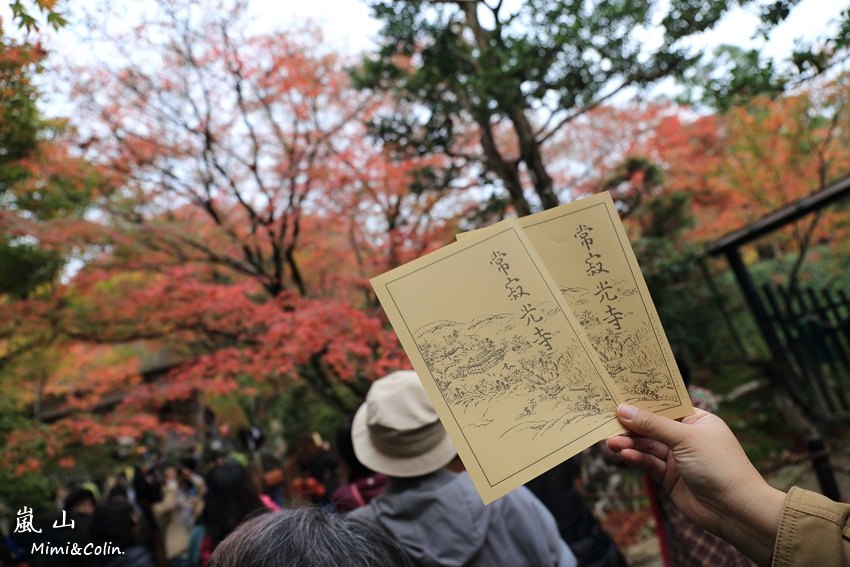 常寂光寺
常寂光寺
嵐山
Mimi&Colin.